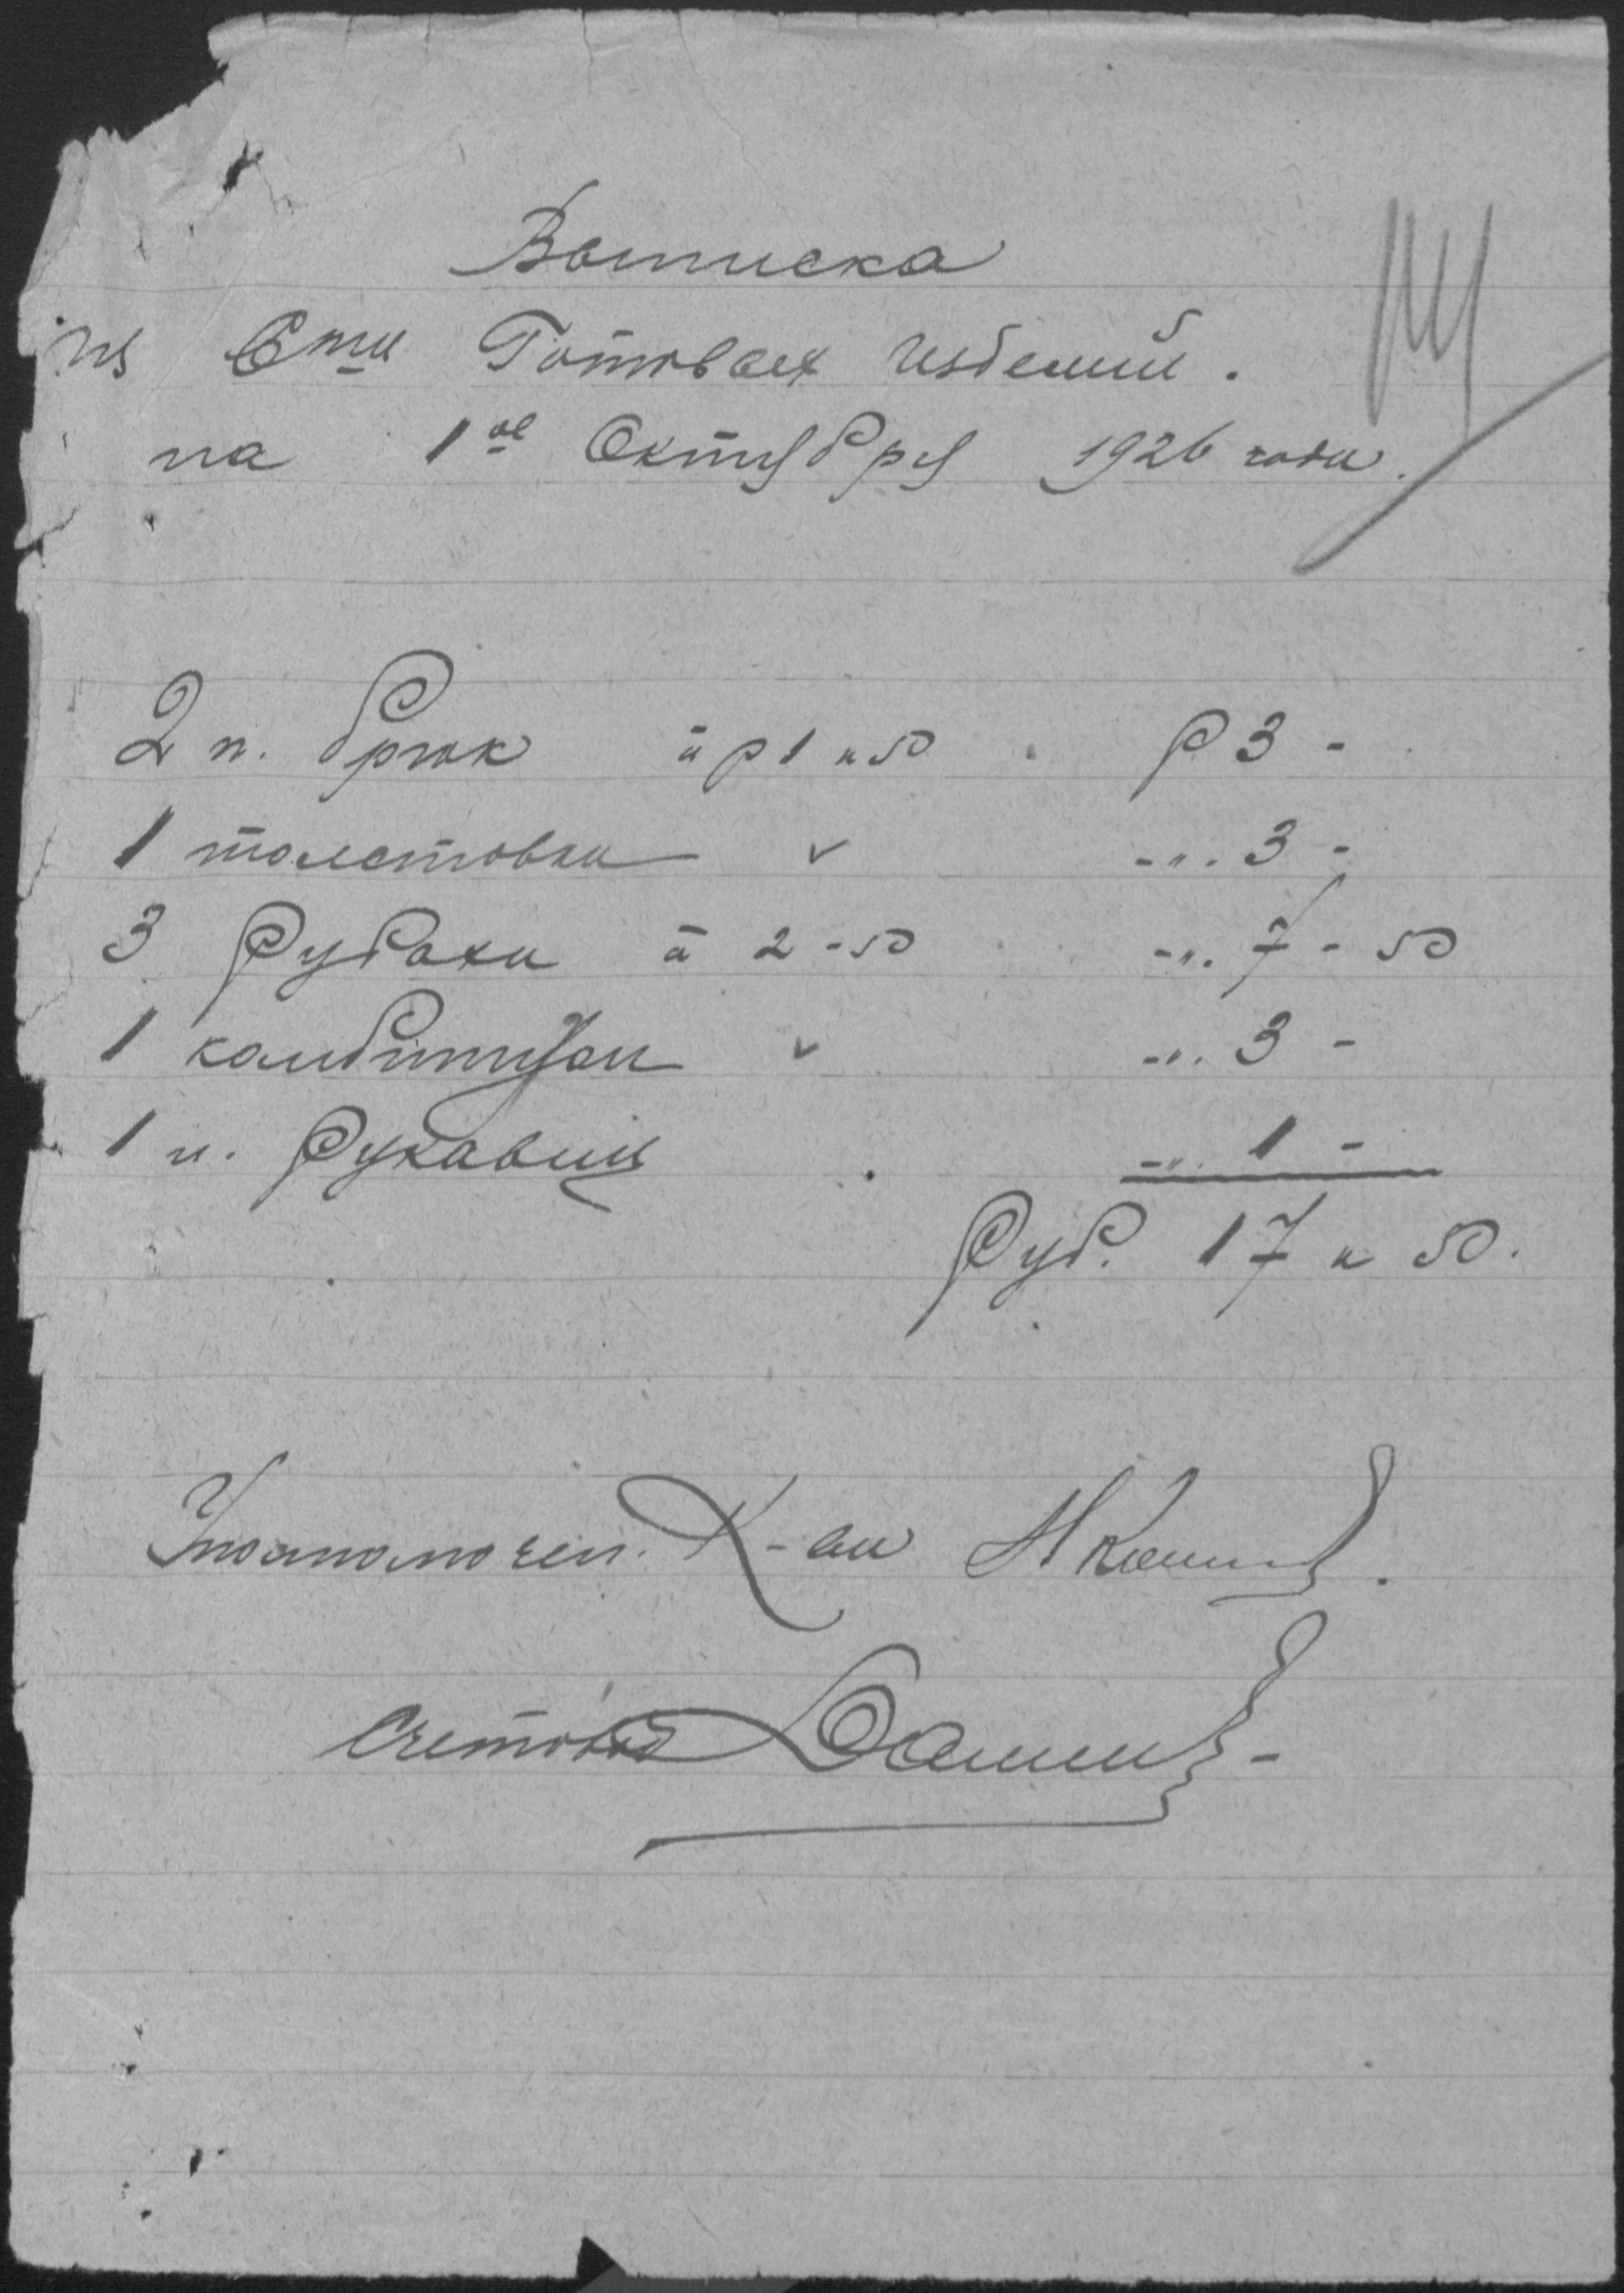 Выписка
из Сти Готовых изделий.
на 1ое Октября 1926 года.
2 п. брюк а р 1 к 50 Р 3 -
1 толстовка v -"- 3 -
3 Рубахи а 2 - 50 -"- 7 - 50
1 комбинизон v -"- 3 -
1 п. Рукавиц -"- 1 -
Руб. 17 к 50.
Уполномочен. К-ии
Счетовод